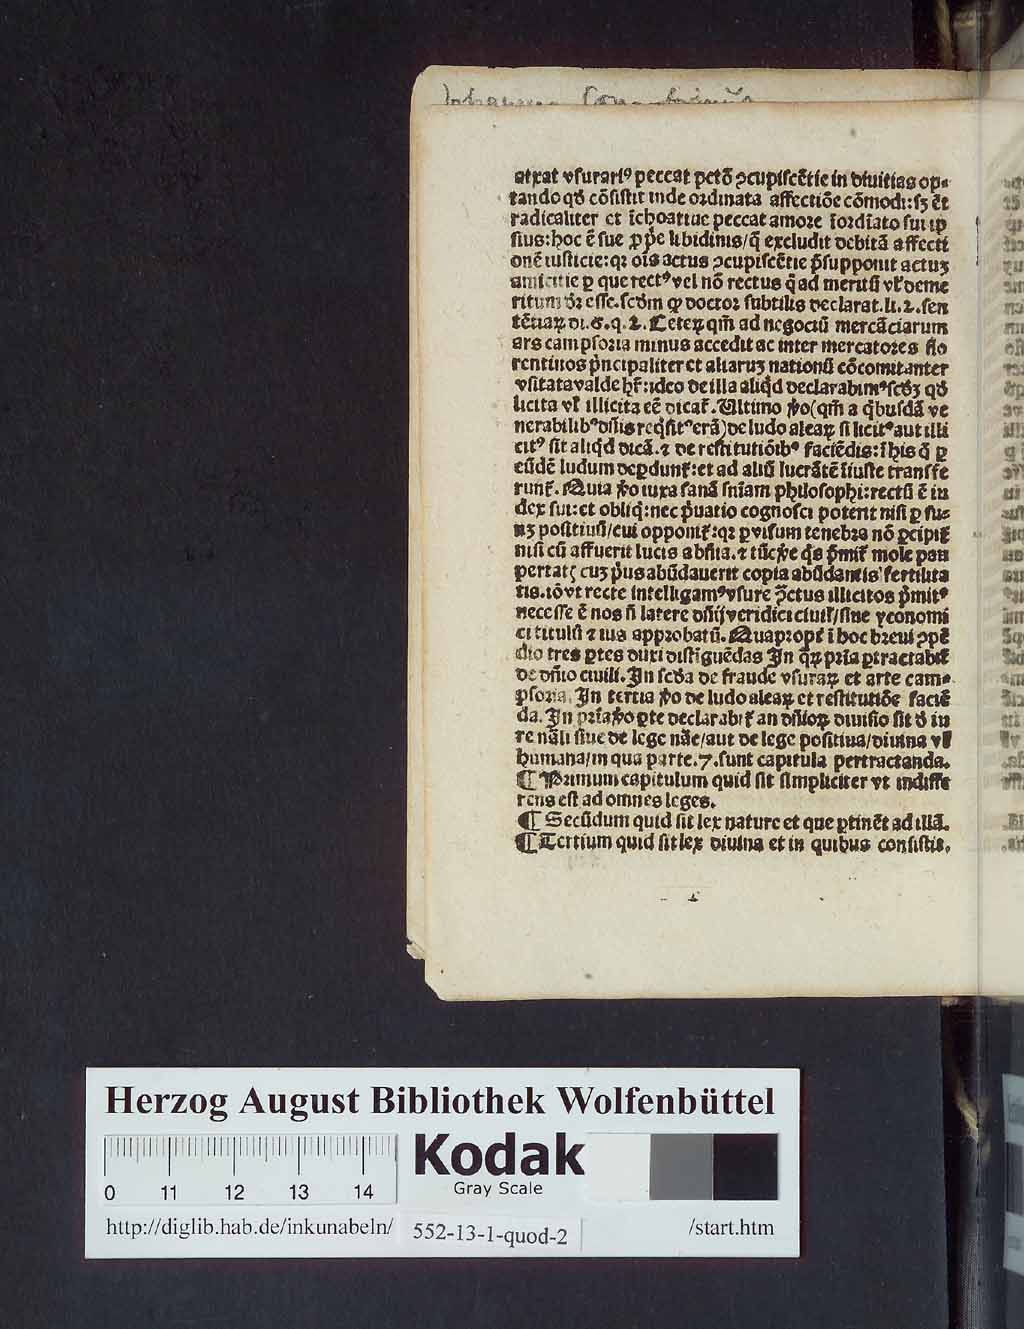 atxat vſurariꝰ peccat pctō ꝯcupiſcētie in diuitias op⸗
tando qđ cōſiſtit inde ordinata affectiōe cōmodi: ſꝫ ēt
radicaliter et īchoatiue peccat amore īordīato ſui ip
ſius: hoc ē ſue ꝓpe libidinis/q̄ excludit debitā affecti
onē iuſticie: qꝛ oīs actus ꝯcupiſcētie p̄ſupponit actuꝫ
amicitie ꝑ que rectꝰ vel nō rectus q̄ad meritū vl' deme
ritum dꝛ eſſe. ſcdm ꝙ doctor ſubtilis declarat. li. 2. ſen
tētiaꝝ di. 6. q. 2. Ceteꝝ qm̄ ad negociū mercāciarum
ars campſoria minus accedit ac inter mercatores flo
rentinos p̄ncipaliter et aliaruꝫ nationū cōcomitanter
vſitata valde hr̄: ideo de illa aliq̇d declarabimꝰ ſcdꝫ qđ
licita vl' illicita eē dicat̄. Ultimo ꝟo (qm̄ a q̇buſdā ve
nerabilibꝰ dn̄is reqſitꝰ erā) de ludo aleaꝝ ſi licitꝰ aut illi
citꝰ ſit aliq̇d dicā. ⁊ de reſtitutiōibꝰ faciēdis: ī his q̄ ꝑ
eūdē ludum deꝑdunt̄: et ad aliū lucrātē īiuſte tranſfe
runt̄. Quia ꝟo iuxa ſanā ſn̄iam philoſophi: rectū ē iu
dex ſui: et obliq̇: nec p̄uatio cognoſci potent niſi ꝑ ſu⸗
uꝫ poſitiuū/cui opponit̄: qꝛ ꝑ viſum tenebra nō ꝑcipit̄
niſi cū affuerit lucis abſn̄ia. ⁊ tūc ꝟe q̇s p̄mit̄ mole pau
pertatꝭ cuꝫ ṗus abūdauerit copia abūdantis fertilita
tis. iō vt recte intelligamꝰ vſure ꝯ̄ctus illicitos p̄mitꝰ
neceſſe ē nos n̄ latere dn̄ij veridici ciuil'/ſiue yconomi
ci titulū ⁊ ius approbatū. Quapropt̄ ī hoc breui ꝯpē
dio tres ꝑtes duxi diſtīguēdas In q̄ꝝ prīa ꝑtractabit̄
de dn̄io ciuili. In ſcđa de fraude vſuraꝝ et arte cam⸗
pſoria. In tertia ꝟo de ludo aleaꝝ et reſtitutiōe faciē
da. In prīa ꝟo ꝑte declarabit̄ an dn̄ioꝝ diuiſio ſit đ iu
re nāli ſiue de lege nāe/aut de lege poſitiua/diuina vl'
humana/in qua parte. 7. ſunt capitula pertractanda.
¶ Primum capitulum quid ſit ſimpliciter vt indiffe
rens eſt ad omnes leges.
¶ Secūdum quid ſit lex nature et que ꝑtinēt ad illā.
¶ Tertium quid ſit lex diuina et in quibus conſiſtit.
Herzog August Bibliothek Wolfenbüttel
Kodak
Gray Scale
0 11 12 13 14
http://diglib.hab.de/inkunabeln/ 552-13-1-quod-2 /start.htm